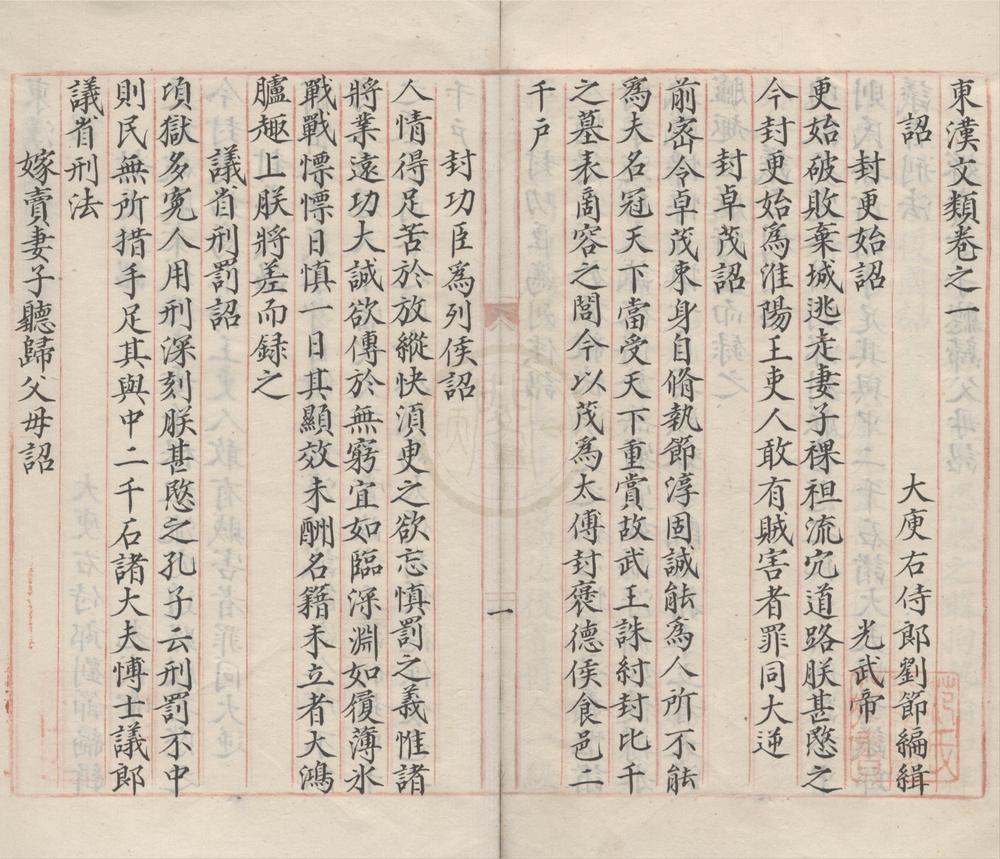 東漢文類卷之一
大庾右侍郎劉節編緝
詔
封更始詔 光武帝
更始破敗棄城逃走妻子裸袒流宂道路朕甚愍之
今封更始為淮陽王吏人敢有賊害者罪同大逆
封卓茂詔
前密令卓茂束身自脩執節淳固誠能為人所不能
為夫名冠天下當受天下重賞故武王誅紂封比干
之墓表商容之閭今以茂為太傅封褒德侯食邑二
千戶
一
封功臣為列侯詔
人情得足苦於放縱快須臾之欲忘慎罰之義惟諸
將業遠功大誠欲傳於無窮宜如臨深淵如履薄氷
戰戰慓慓日慎一日其顯效未酬名籍未立者大鴻
臚趣上朕將差而録之
議省刑罰詔
項獄多寃人用刑深刻朕甚愍之孔子云刑罰不中
則民無所措手足其與中二千石諸大夫愽士議郎
議省刑法
嫁賣妻子聽歸父母詔